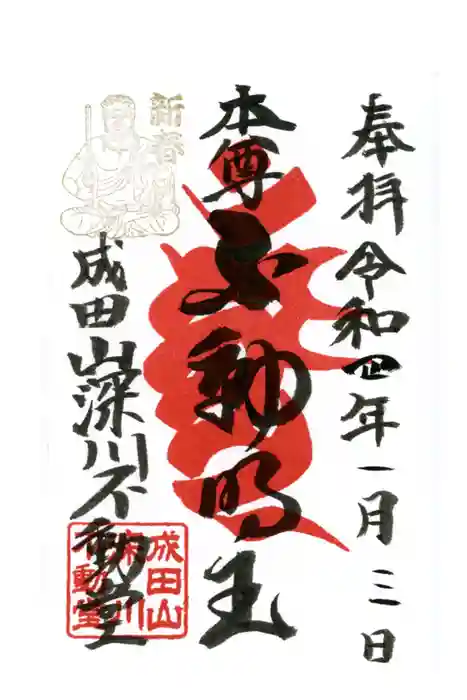 奉拝 令和四年一月三日
本尊 不動明王
新春
成田山深川不動堂
成田山
深川
不動堂